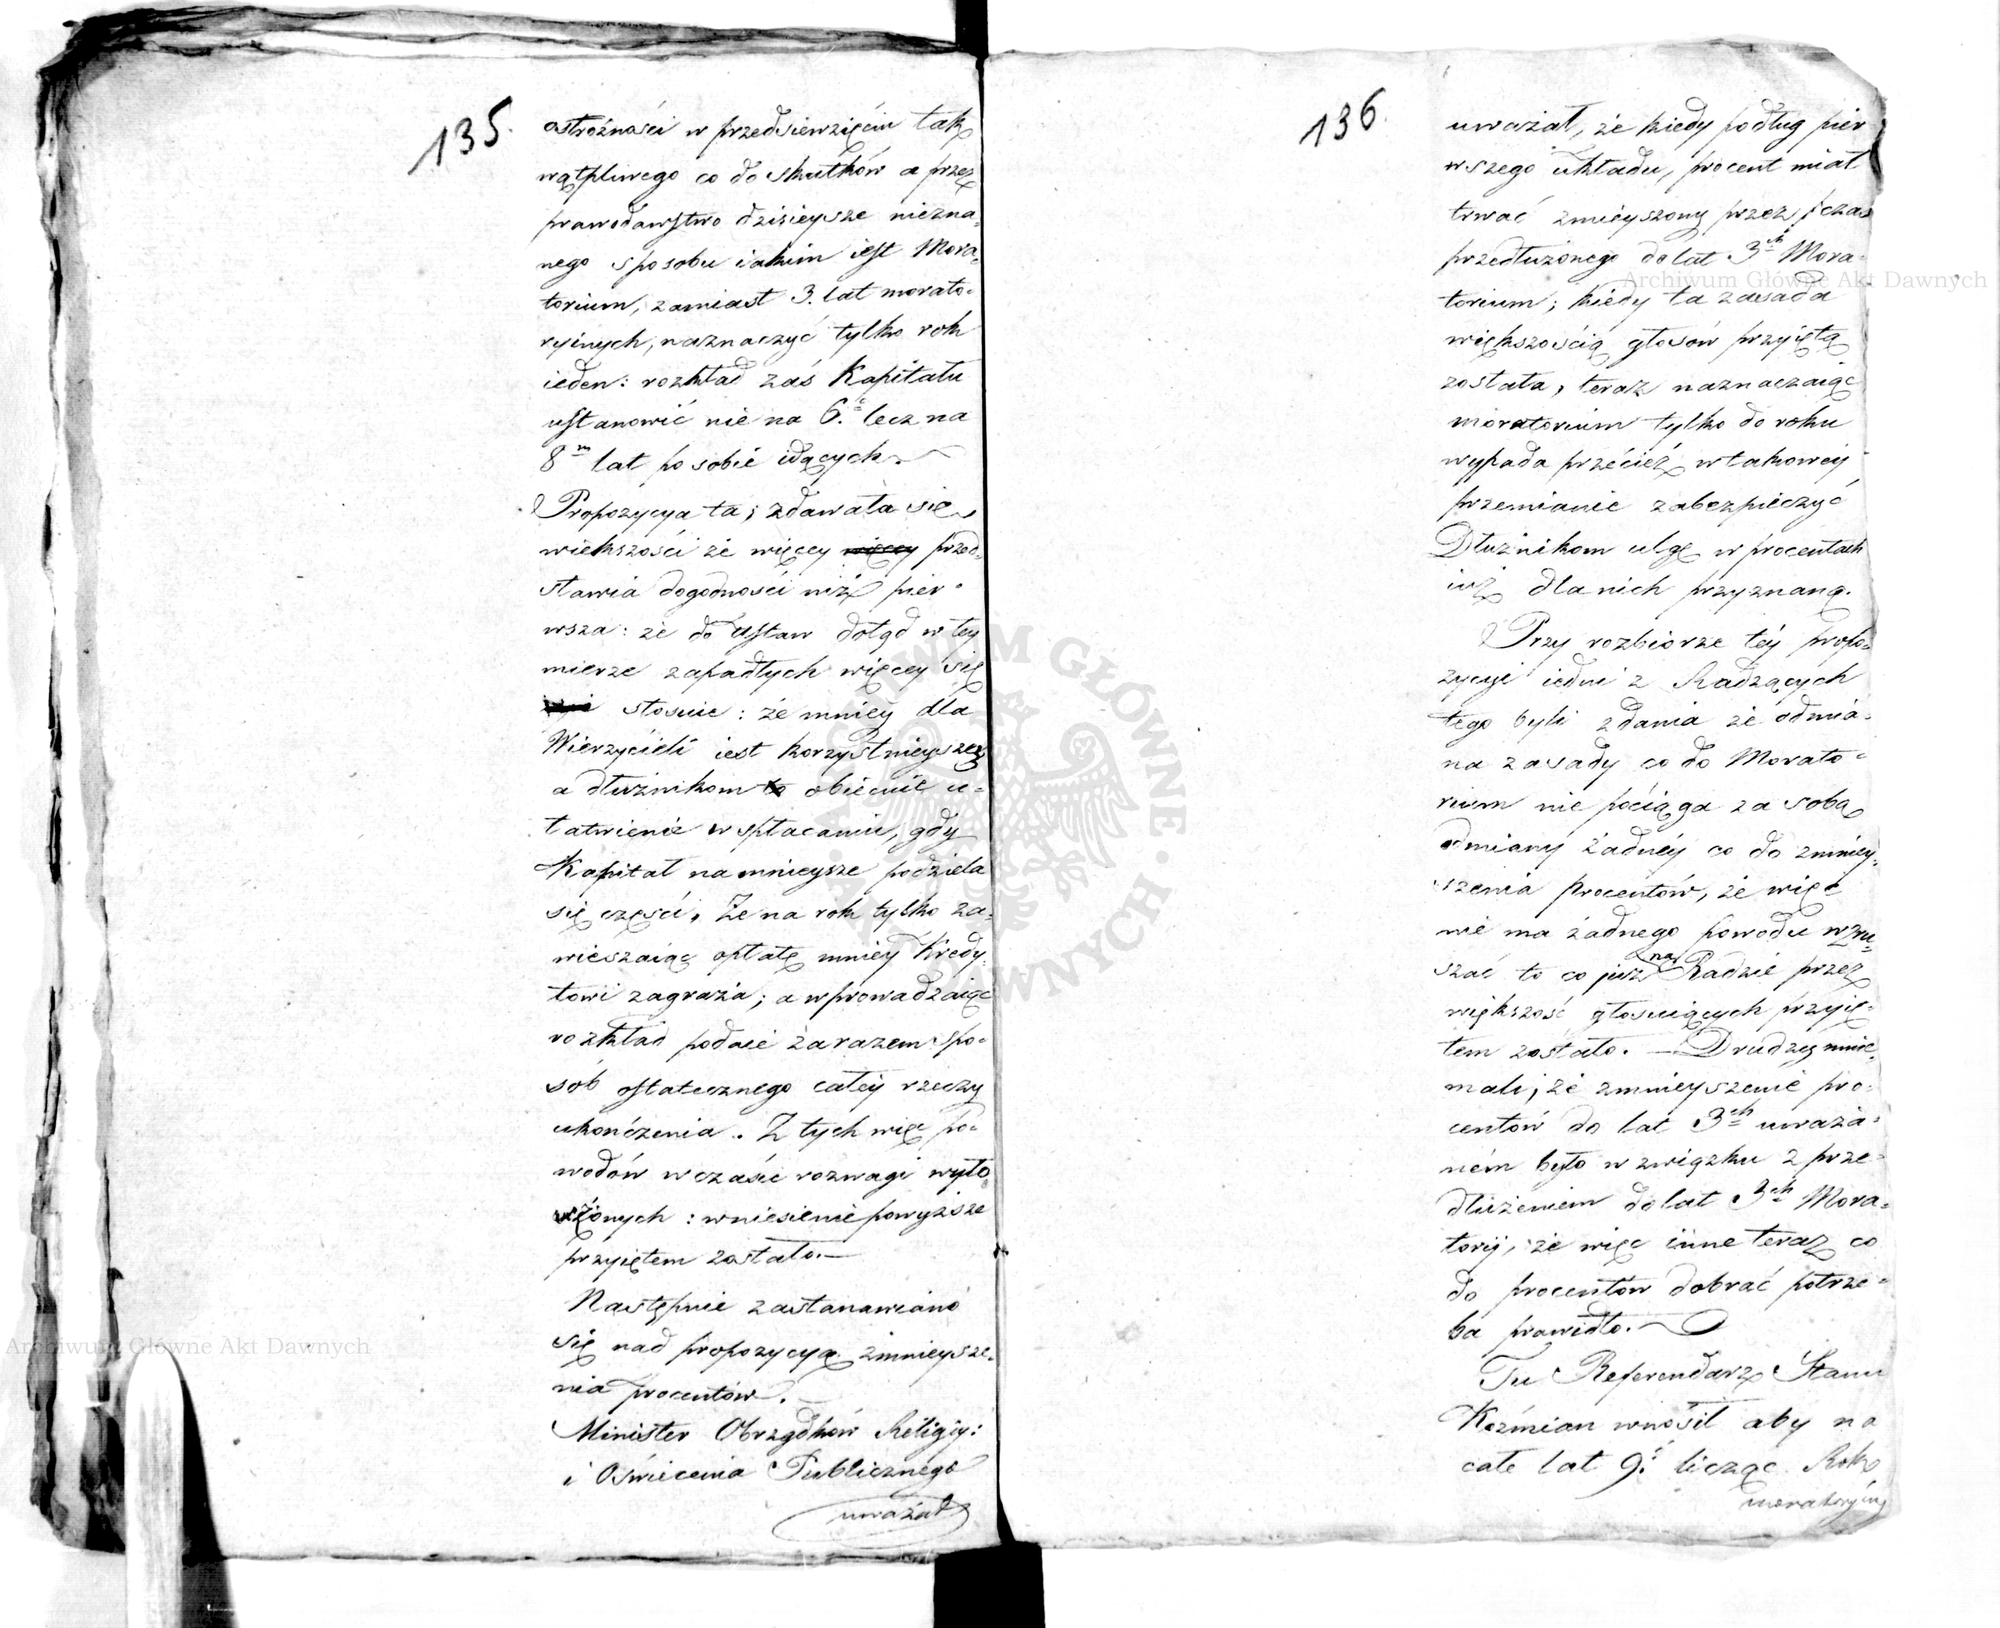 135.
ostrożności w przedsięwzięciu tak
wątpliwego co do skutków a przez
prawodawstwo dzisieysze niezna-
nego sposobu iakim iest Mora-
torium, zamiast 3. lat morato-
ryinych, naznaczyć tylko rok
ieden: rozkład zaś Kapitału
ustanowić nie na 6. lecz na
8m lat po sobie idących.
Propozycya ta, zdawała się
wiekszości że więcey więcey przed-
stawia dogodności niż pier-
wsza: że do ustaw dotąd w tey
mierze zapadłych więcey się
stosuie: że mniey dla
Wierzycieli iest korzystnieysze
a dłużnikom obiecuie u-
łatwienie w spłacaniu, gdy
Kapitał na mnieysze podziela
się części. Że na rok tylko za-
wieszaiąc opłatę mniey Kredy-
towi zagraża; a wprowadzaiąc
rozkład podaie zarazem spo-
sób ostatecznego całey rzeczy
ukończenia. Z tych więc po-
wodów w czasie rozwagi wyło-
żonych: wniesienie powyższe
przyiętem zostało.
Następnie zastanawiano
się nad propozycyą zmnieysze-
nia procentów.
Minister Obrządków Religiy:
i Oświecenia Publicznego
uważał
136.
uważał, że kiedy podług pier-
wszego układu, procent miał
trwać zmieyszony przez czas
przedłużonego do lat 3ch Mora-
torium; kiedy ta zasada
większością głosów przyiętą
została, teraz naznaczaiąc
moratorium tylko do roku
wypada przecież w takowey
przemianie zabezpieczyć
Dłużnikom ulgę w procentach
iuż dla nich przyznaną.
Przy rozbiorze téy propo-
zycyi iedni z Radzących
tego byli zdania że odmia-
na zasady co do Morato-
rium nie pociąga za sobą
odmiany żadnéy co do zmniey-
szenia procentów, że więc
nie ma żadnego powodu wzru-
szać to co już na Radzie przez
większość głosuiących przyię-
tem zostało. — Drudzy mnie-
mali, że zmnieyszenie pro-
centów do lat 3ch uważa-
ném było w związku z prze-
dłużeniem do lat 3ch Mora-
torij, że więc inne teraz co
do procentów dobrać potrze-
ba prawidło.
Tu Referendarz Stanu
Koźmian wnosił aby na
całe lat 9. licząc Rok
moratoryiny
Archiwum Główne Akt Dawnych
Archiwum Główne Akt Dawnych
ARCHIWUM GŁÓWNE AKT DAWNYCH